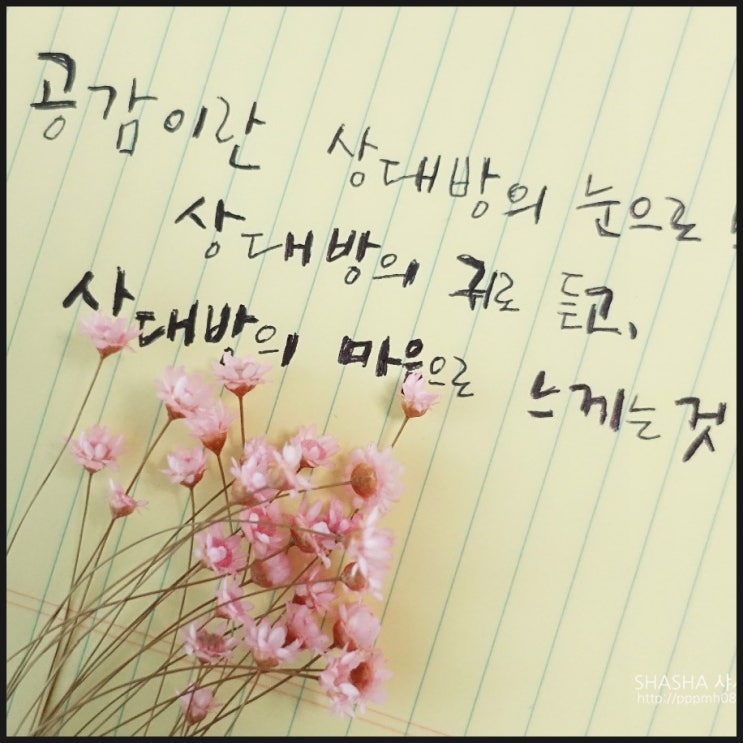 공감이란 상대방의 눈으로
상대방의 귀로 듣고,
상대방의 마음으로 느끼는 것
SHASHA
http://pppmh08